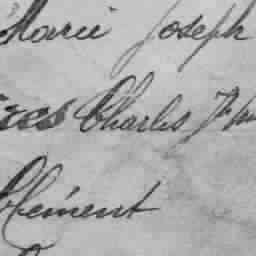 Marie Joseph
Charles
Clément